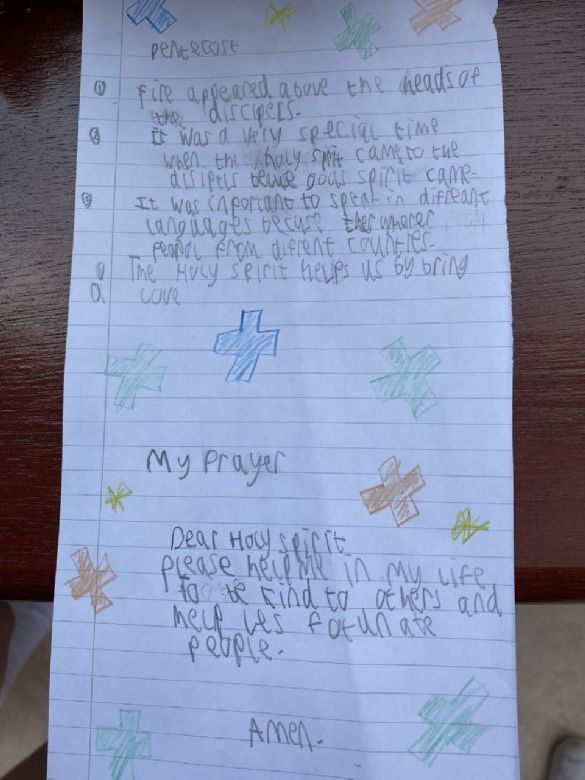 Pentecost
Fire appeared above the heads of
the discipels.
It was a very special time
when the Holy Spirit came to the
disipels becuse gods spirit came-
It was important to speak in diffreant
languages becuse ther wherer
people from difrent countries-
The Holy Spirit helps us by bring
love
My Prayer
Dear Holy Spirit
please help me in my life
to be kind to others and
help les fotunate
people.
Amen.